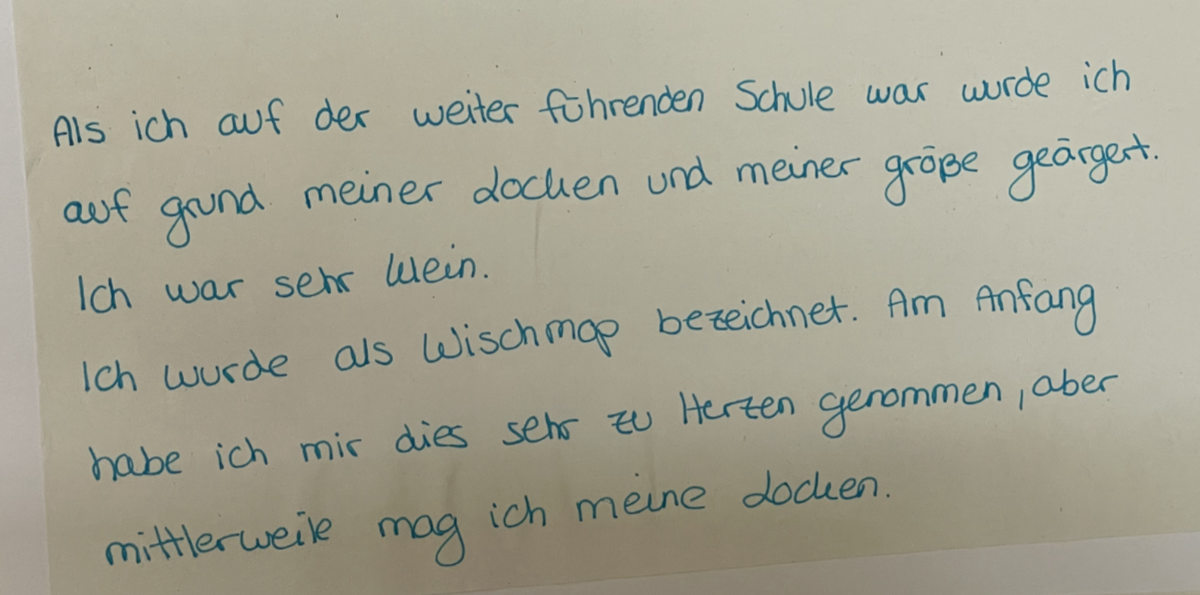 Als ich auf der weiter führenden Schule war wurde ich
auf grund meiner Locken und meiner größe geärgert.
Ich war sehr klein.
Ich wurde als Wischmop bezeichnet. Am Anfang
habe ich mir dies sehr zu Herzen genommen, aber
mittlerweile mag ich meine Locken.